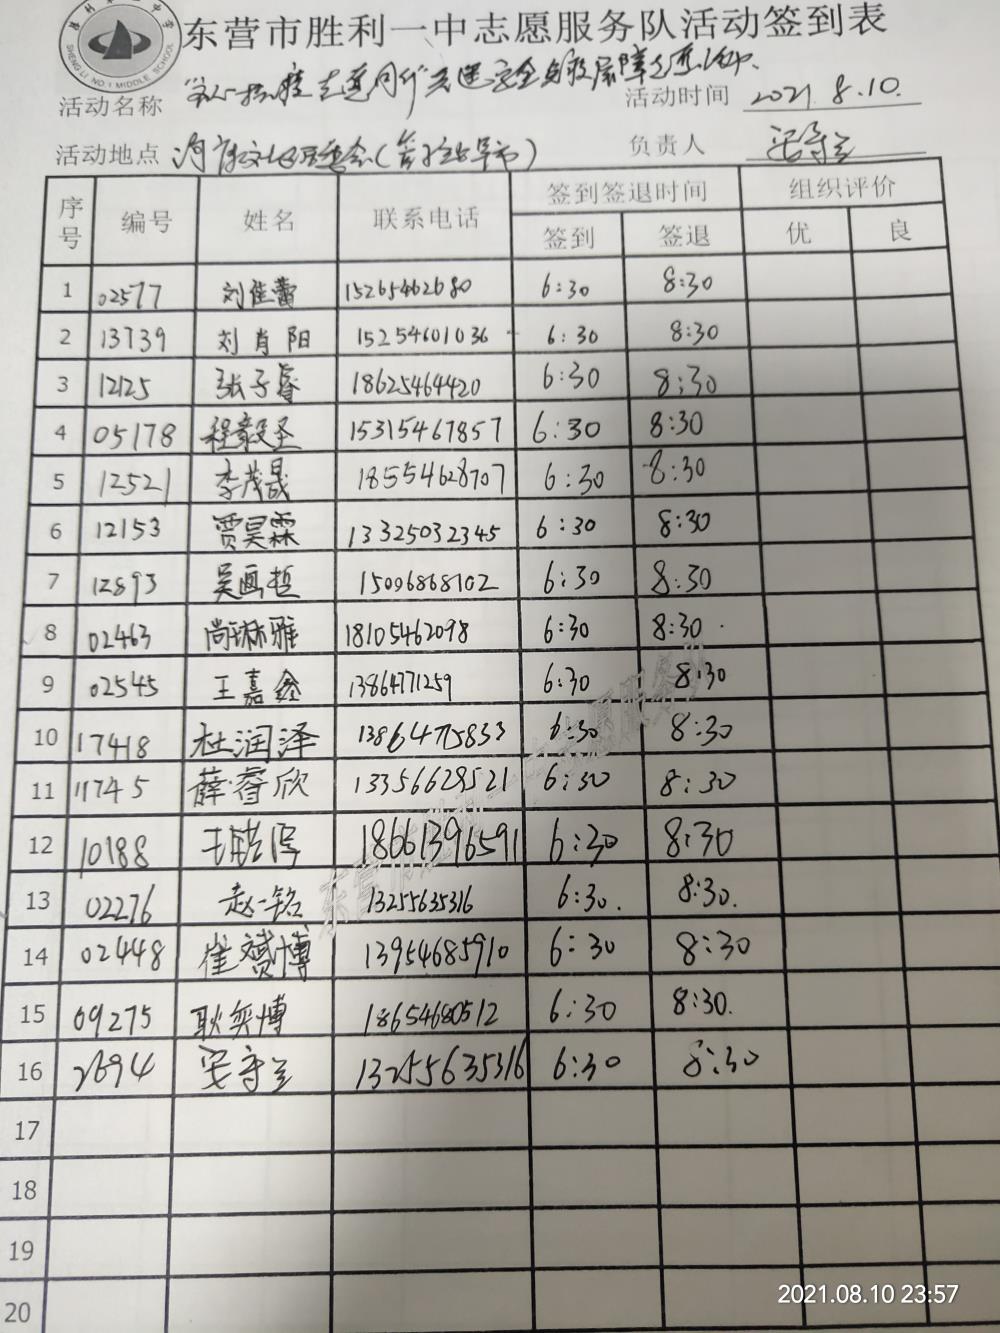 SHENG LI NO.1 MIDDLE SCHOOL
东营市胜利一中志愿服务队活动签到表
活动名称 活动时间 2021.8.10.
活动地点 负责人
序号 编号 姓名 联系电话 签到签退时间 组织评价
签到 签退 优 良
1 02577 刘佳蕾 15265462680 6:30 8:30
2 13739 刘肖阳 15254601036 6:30 8:30
3 12125 张子睿 18625464420 6:30 8:30
4 05178 程毅圣 15315467857 6:30 8:30
5 12521 李茂晟 18554628707 6:30 8:30
6 12153 贾昊霖 13325032345 6:30 8:30
7 12893 吴画哲 15006868102 6:30 8:30
8 02463 尚琳雅 18105462098 6:30 8:30
9 02545 王嘉鑫 13864771259 6:30 8:30
10 17418 杜润泽 13864775833 6:30 8:30
11 11745 薛睿欣 13356629521 6:30 8:30
12 10188 18661396591 6:30 8:30
13 02276 赵一铭 13255635316 6:30. 8:30.
14 02448 崔赟博 13954685910 6:30 8:30
15 09275 耿奕博 18654680512 6:30 8:30.
16 2694 13255635316 6:30 8:30
17
18
19
20
2021.08.10 23:57